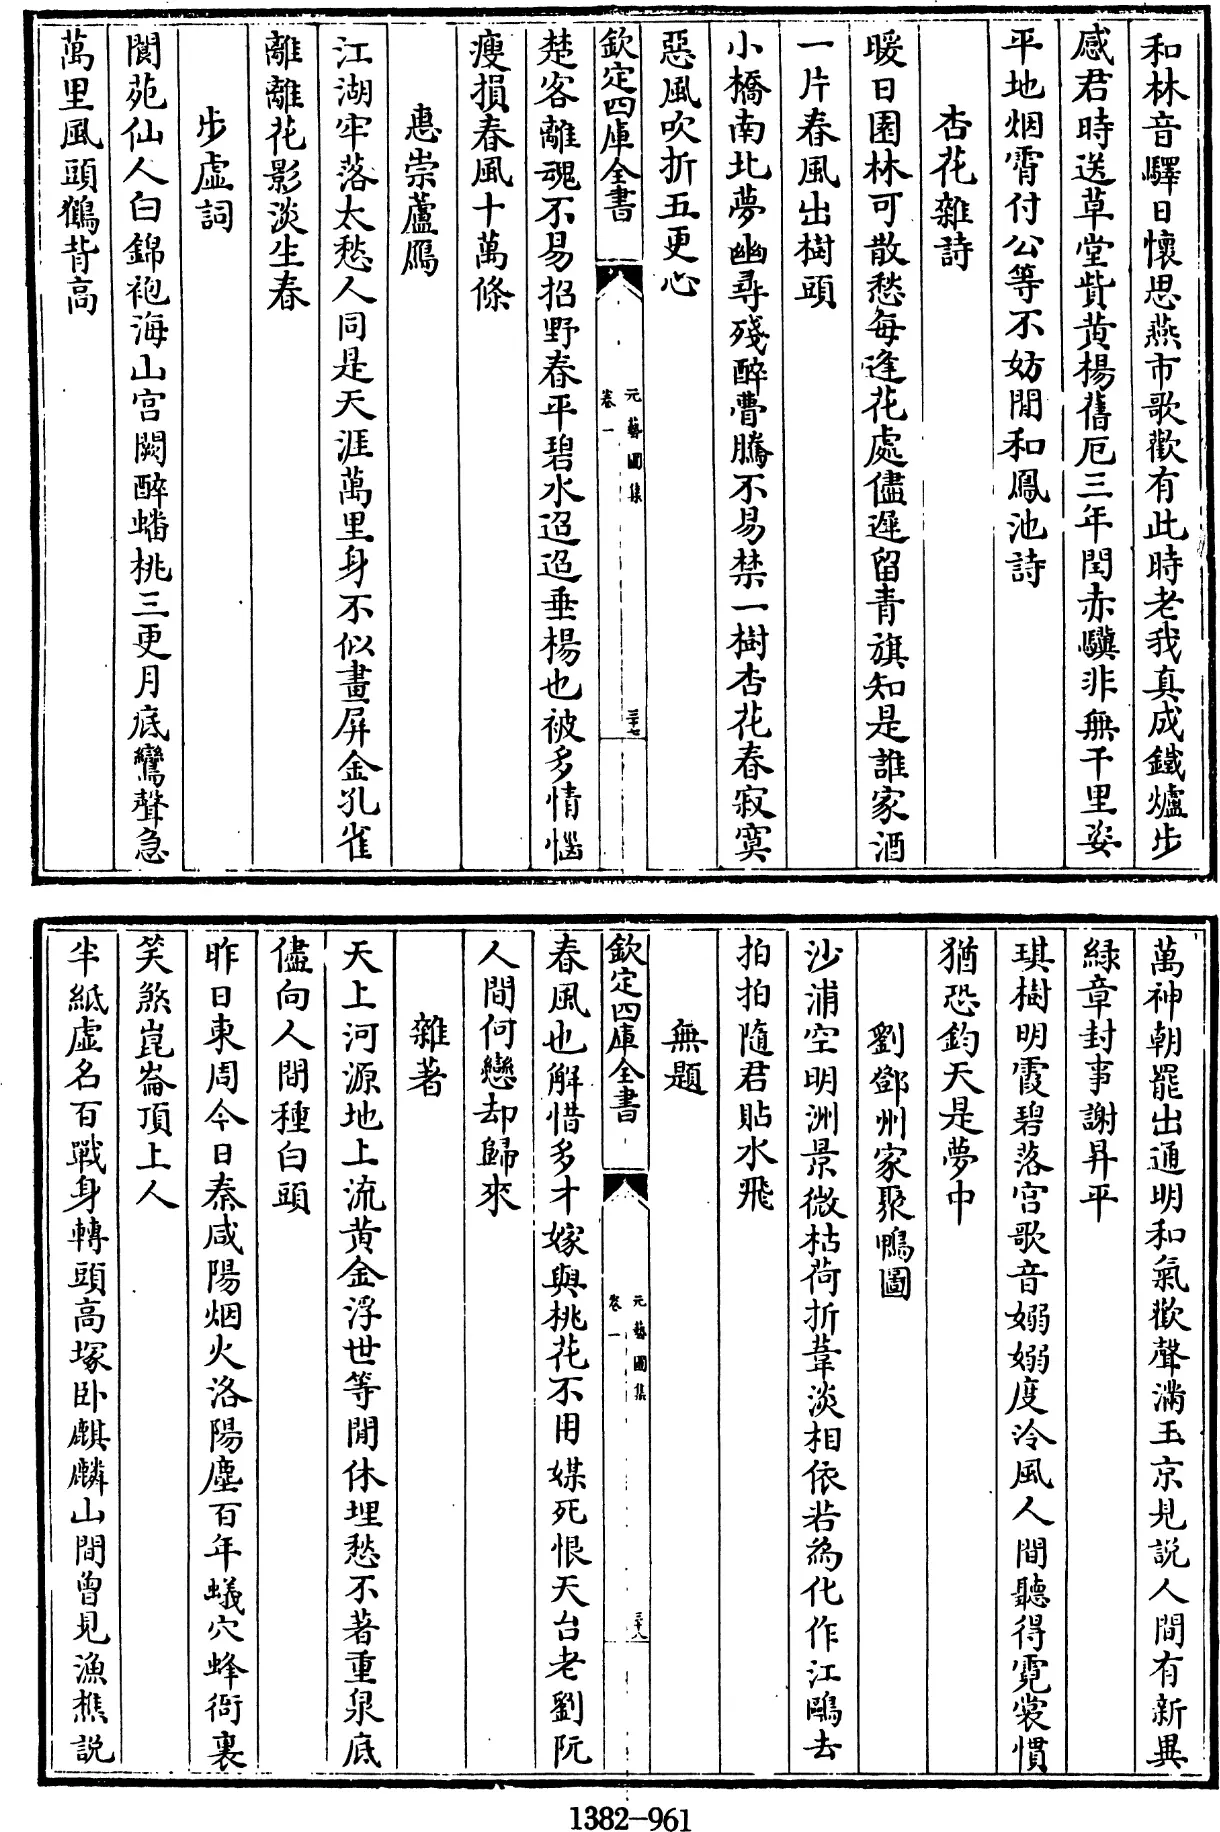 和林音驛日懷思燕市歌歡有此時老我真成鐵爐步
感君時送草堂貲黄楊舊厄三年閏赤驥非無千里姿
平地烟霄付公等不妨閒和鳳池詩
杏花雜詩
暖日園林可散愁每逢花處儘遲留青旗知是誰家酒
一片春風出樹頭
小橋南北夢幽尋殘醉瞢騰不易禁一樹杏花春寂寞
惡風吹折五更心
欽定四庫全書
元藝圃集
卷一
三十七
楚客離魂不易招野春平碧水迢迢垂楊也被多情惱
瘦損春風十萬條
惠崇蘆鴈
江湖牢落太愁人同是天涯萬里身不似畫屏金孔雀
離離花影淡生春
步虛詞
閬苑仙人白錦袍海山宫闕醉蟠桃三更月底鸞聲急
萬里風頭鶴背高
萬神朝罷出通明和氣歡聲滿玉京見説人間有新異
緑章封事謝昇平
琪樹明霞碧落宫歌音嫋嫋度泠風人間聽得霓裳慣
猶恐鈞天是夢中
劉鄧州家聚鴨圖
沙浦空明洲景微枯荷折葦淡相依若為化作江鷗去
拍拍隨君貼水飛
無題
欽定四庫全書
元藝圃集
卷一
三十八
春風也解惜多才嫁與桃花不用媒死恨天台老劉阮
人間何戀却歸來
雜著
天上河源地上流黄金浮世等閒休埋愁不著重泉底
儘向人間種白頭
昨日東周今日秦咸陽烟火洛陽塵百年蟻穴蜂衙裏
笑煞崑崙頂上人
半紙虛名百戰身轉頭高塚卧麒麟山間曾見漁樵説
1382-961